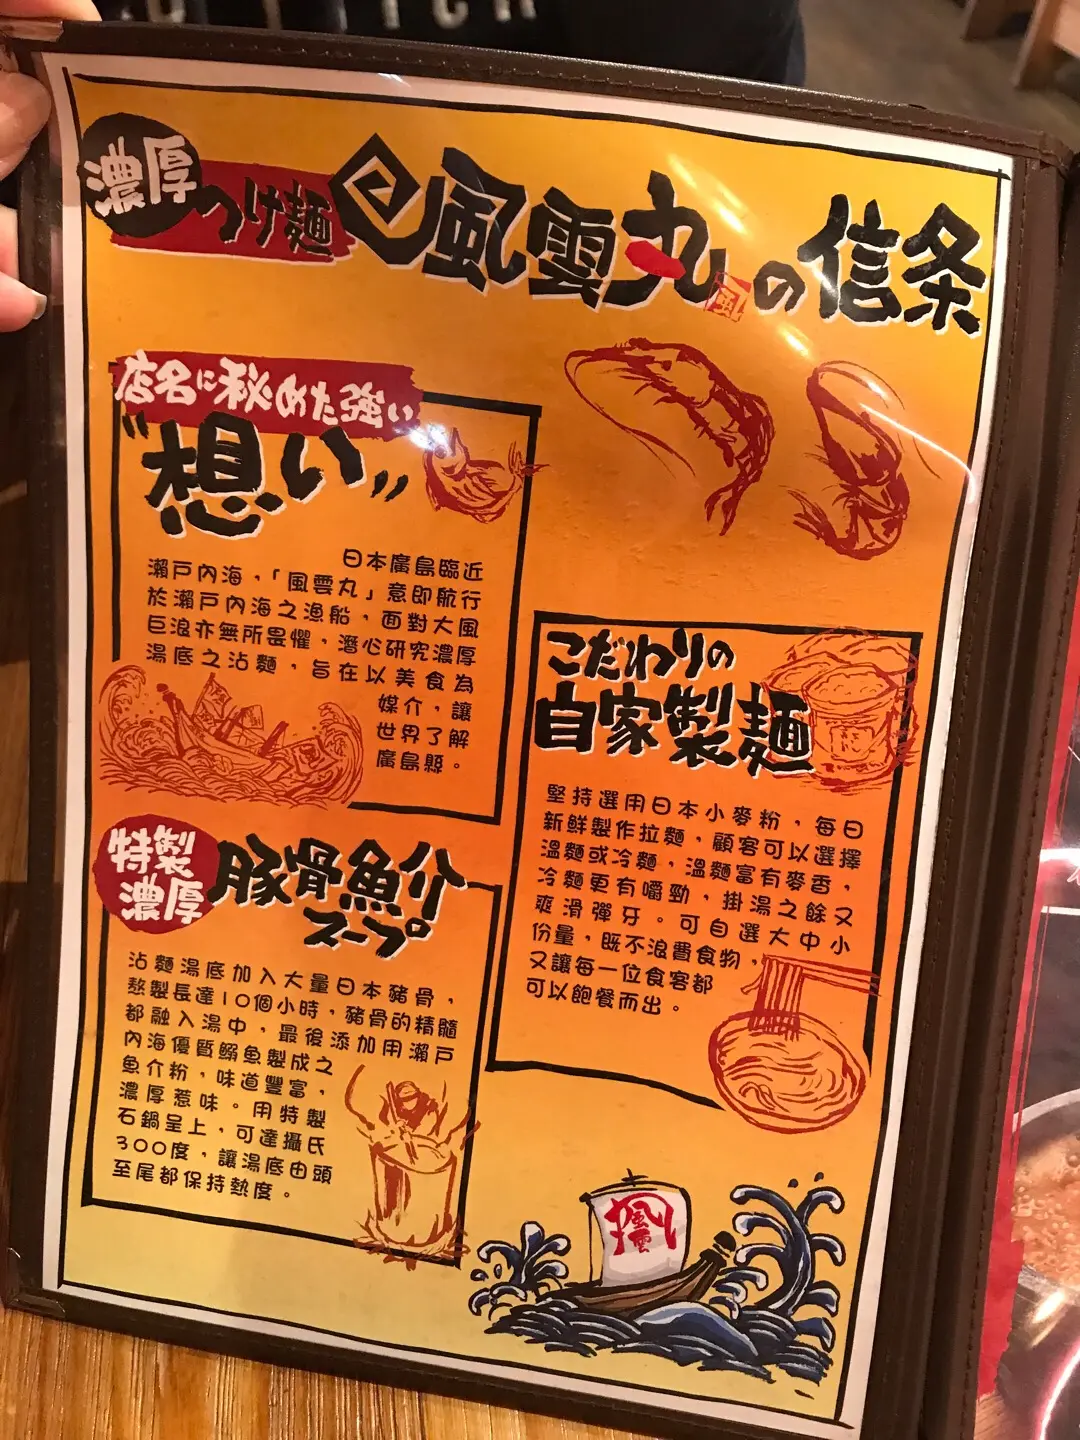 濃厚つけ麺 風雲丸 風 の信条
店名に秘めた強い
"想い"
日本廣島臨近
瀨戶內海，「風雲丸」意即航行
於瀨戶內海之漁船，面對大風
巨浪亦無所畏懼，潛心研究濃厚
湯底之沾麵，旨在以美食為
媒介，讓
世界了解
廣島縣。
こだわりの
自家製麺
堅持選用日本小麥粉，每日
新鮮製作拉麵，顧客可以選擇
溫麵或冷麵，溫麵富有麥香，
冷麵更有嚼勁，掛湯之餘又
爽滑彈牙。可自選大中小
份量，既不浪費食物，
又讓每一位食客都
可以飽餐而出。
特製
濃厚
豚骨魚介
スープ
沾麵湯底加入大量日本豬骨，
熬製長達10個小時，豬骨的精髓
都融入湯中，最後添加用瀨戶
內海優質鰯魚製成之
魚介粉，味道豐富，
濃厚惹味。用特製
石鍋呈上，可達攝氏
300度，讓湯底由頭
至尾都保持熱度。
風雲